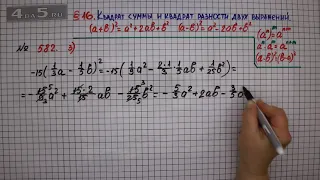 4
§16. Квадрат суммы и квадрат разности двух выражений
(a+b)²=a²+2ab+b² (a-b)²=a²-2ab+b²
№ 582. 3)
a·a=a
(a·b)ⁿ=
-15(1/3a-1/5b)²=-15(1/9a²-2·1/3·1/5ab+1/25b²)=
=-15/9a²+15·2/15ab-15/25b²=-5/3a²+2ab-3/5